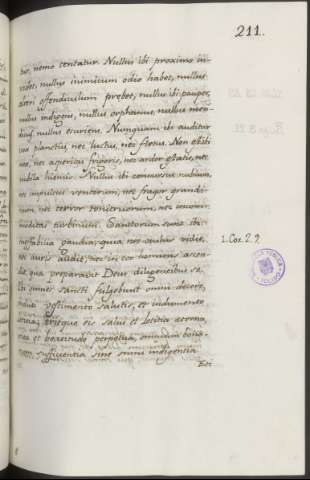 211.
bor, nemo tentatur. Nullus ibi proximo in-
videt, nullus inimicum odio habet, nullus
alteri offendiculum prebet, nullus ibi pauper,
nullus indigens, nullus orphanus, nullus men-
dicus, nullus esuriens. Nunquam ibi auditur
vox planctus, nec luctus, nec fletus. Non estibi
nec asperitas frigoris, nec ardor estatis, nec
nubila hiemis. Nullus ibi concursus nubium,
nec impulsus ventorum, nec fragor grandi-
num, nec terror tonitruorum, nec
turbinum. Sanctorum sunt ibi
ineffabilia gaudia, que nec oculus vidit,
nec auris audivit, nec in cor hominis ascen-
dit, que preparavit Deus diligentibus se.
Ibi omnes sancti fulgebunt omni decore,
induti vestimento salutis, et indumento
eritque eis salus et letitia eterna,
pax et beatitudo perpetua, omnium bono-
rum sufficientia sine omni indigentia
1. Cor. 2. 9.
Ibi